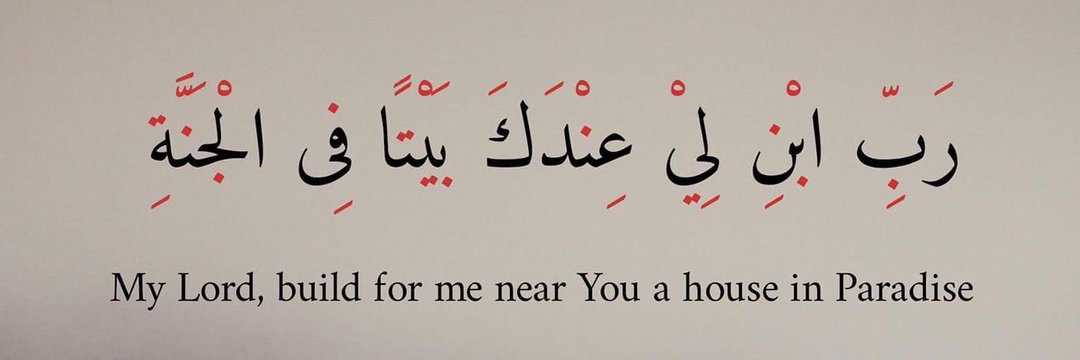 رَبِّ ابْنِ لِيْ عِنْدَكَ بَيْتًا فِى الْجَنَّةِ
My Lord, build for me near You a house in Paradise